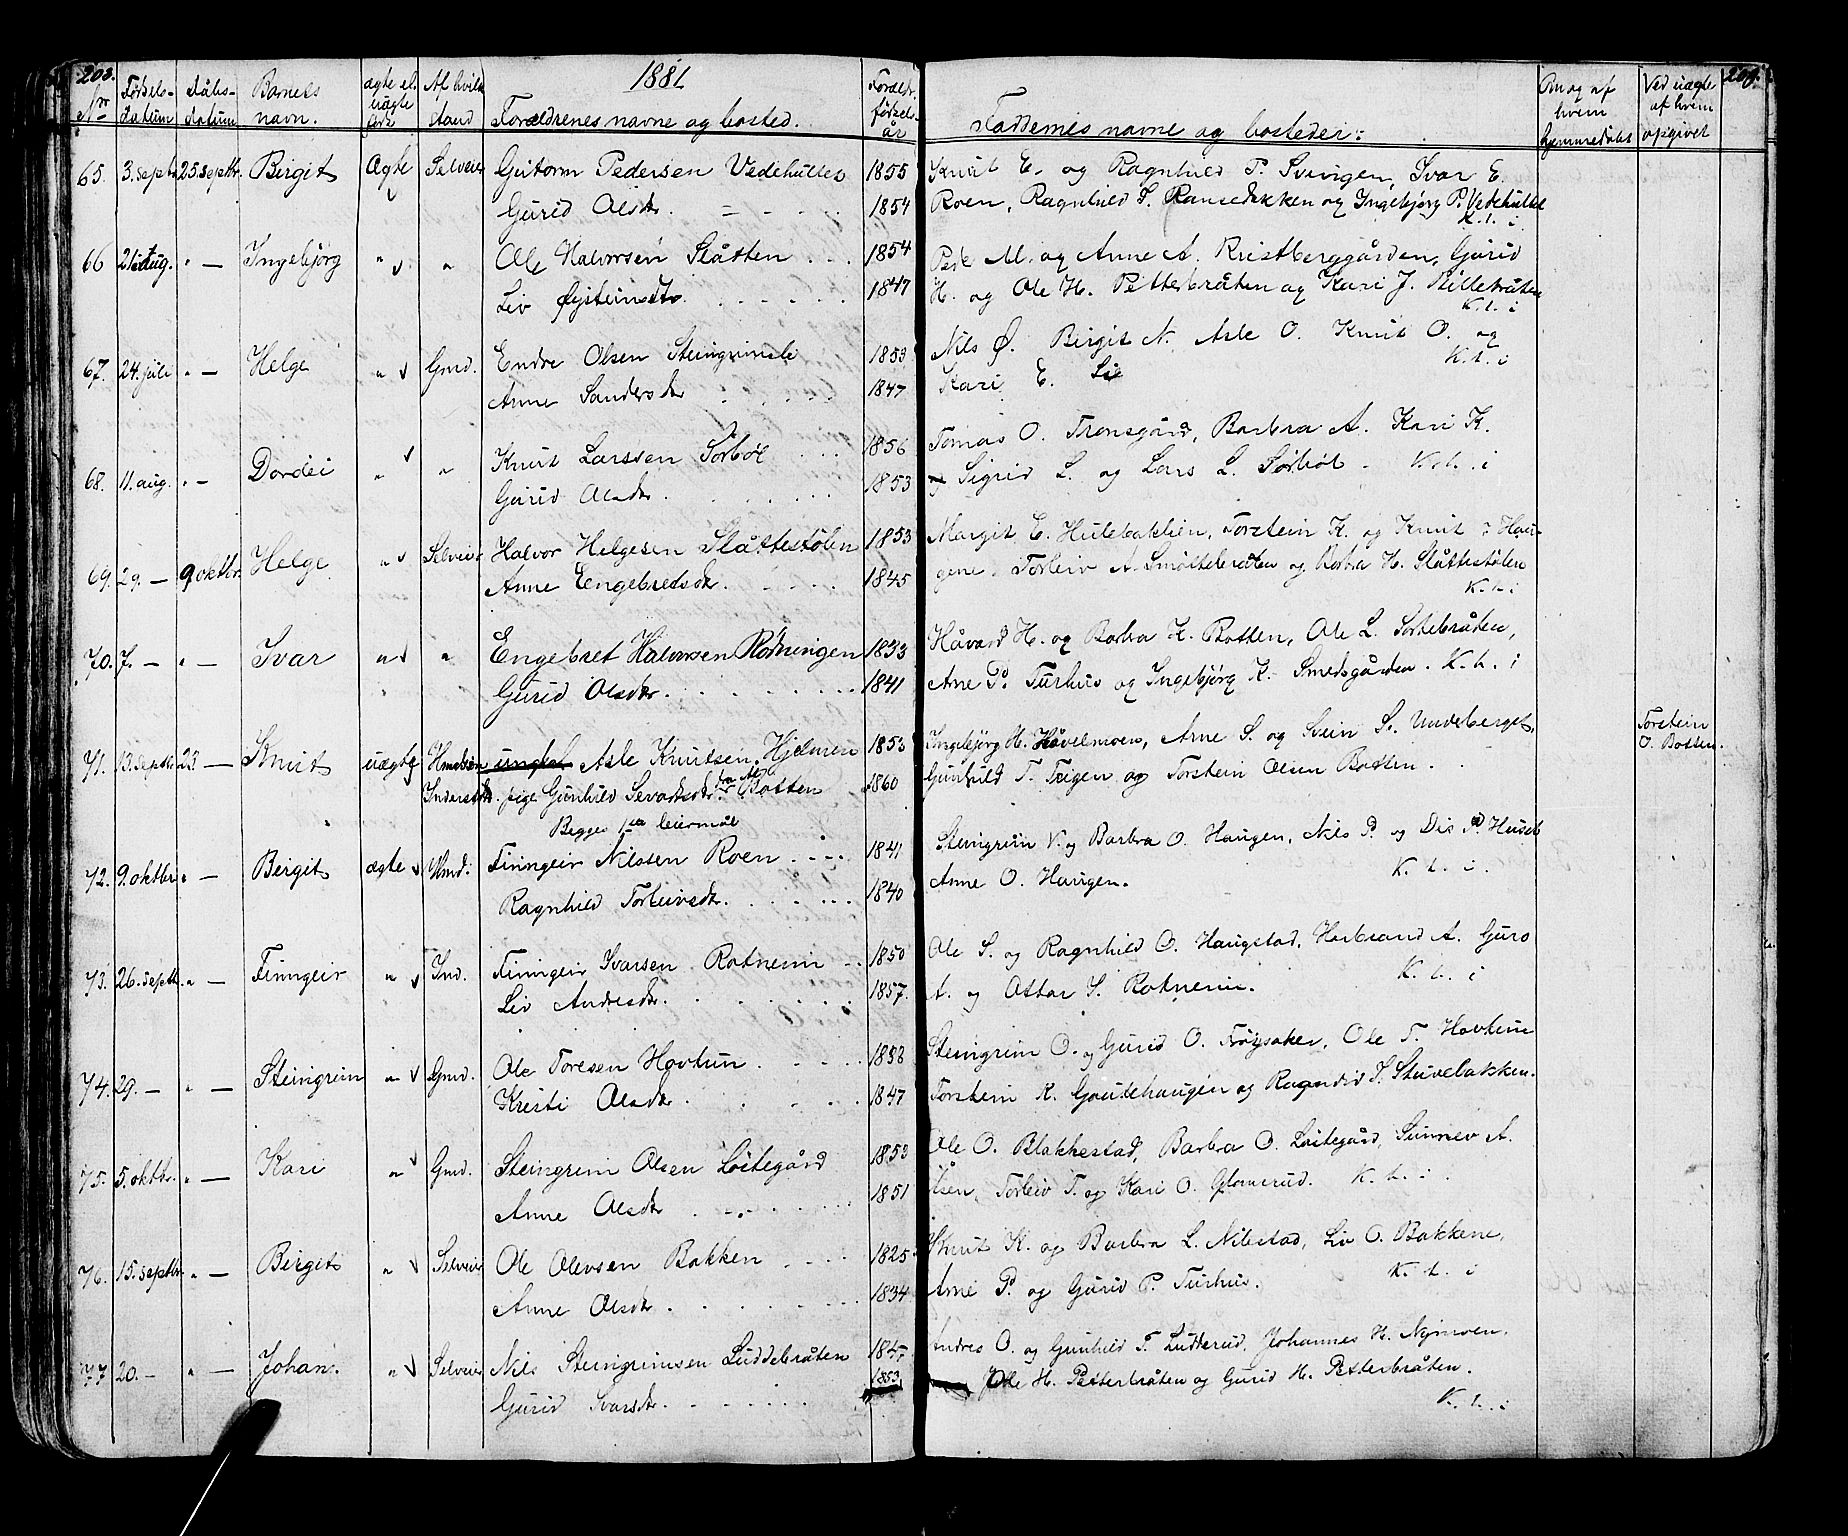 203. 1881 204.
No Fødsels-datum Dåbs-datum Barnets navn. ægte el. uægte Af hvilk stand Forældrenes navne og bosted. Foræld. fødsels-år Faddernes navne og bosteder: Om og af hvem hjemmedøbt Ved uægte af hvem opgivet
65. 3. septr 25. septbr. Birgit Ægte Selveier Gutorm Pedersen Vedehulle 1855 Knut E. og Ragnhild P. Svingen, Ivar E.
Gurid Olsdr. = 1854 Roen, Ragnhild S. Ransedokken og Ingebjørg P. Vedehulle
K. t. i
66 21 aug. " — Ingebjørg " " Ole Halvorsen Slåtten 1854 Peder M. og Anne A. Kristberggården, Gurid
Liv Øisteinsdtr 1847 H. og Ole H. Petterbråten og Kari J. Pillebråten
K. t. i
67. 24. juli " — Helge " Gmd. Endre Olsen Steingrimsli 1853 Nils Ø. Birgit N. Asle O. Knut O. og
K. t. i
Anne Sandersdr 1847 Kari E. Lie
68. 11. aug. " - Dordei " " Knut Larssen Sørbøl 1856 Tomas O. Trønsgård, Barbra A. Kari K.
Gurid Olsdr. 1853 og Sigrid L. og Lars L. Sørbøl. K. t. i
69. 29. — 9. oktbr. Helge " Selveier Halvor Helgesen Slåttestølen 1853 Margit E. Hulebakken, Torstein K. og Knut Hau-
Anne Engebretsdr. 1845 gene. Torleiv A. Smøttebråten og Barbra H. Slåttestølen
K. t. i
70. 7. — " — Ivar " " Engebret Halvorsen Rotningen 1833 Håvard H. og Barbra K. Botten, Ole L. Sortebråten,
Gurid Olsdr. 1841 Arne P. Turhus og Ingebjørg K. Smedsgården. K. t. i
71. 13. septr 23 — Knut uægte ungk. Asle Knutsen Hjelmen 1853 Ingebjørg H. Håvelmoen, Arne S. og Svein S. Underberget, Torstein O. Botten.
pige Gunhild Sevatsdr. fra Botten 1860 Gunhild T. Trigen og Torstein Olsen Botten.
Begges 1ste leiermål
72. 9. oktbr. " — Birgit ægte Hmd. Finngeir Nilssen Roen 1841 Steingrim K. og Barbra O. Haugen, Nils P. og Dis P. Huset
Ragnhild Torleivsdr. 1840 Anne O. Haugen. K. t. i.
73. 26. septbr. " — Finngeir " Ind. Finngeir Ivarsen Rotneim 1850 Ole S. og Ragnhild O. Haugstad, Herbrand A. Guro
Liv Andersdr. 1857. A. og Ottar S. Rotneim. K. t. i
74. 29. — " — Steingrim " Gmd. Ole Toresen Hovtun 1858 Steingrim O. og Gurid O. Frøysaker, Ole T. Hovtun
Kristi Olsdr. 1847 Torstein K. Gautehaugen og Ragndid S. Stuvebakken.
75. 5. oktbr. " — Kari " Gmd. Steingrim Olsen Loitegård 1853 Ole O. Blakkestad, Barbra O. Loitegård, Sunnev A.
Anne Olsdr 1851 Åsen, Torleiv T. og Kari O. Glømerud. K. t. i.
76. 15. septbr. " — Birgit " Selveier Ole Olevsen Bakken 1825 Knut K. og Barbra L. Nibstad, Liv O. Bakkene,
Anne Olsdr. 1834 Arne P. og Gurid P. Turhus. K. t. i
77 20. — " — Johan. " Selveier Nils Steingrimsen Luddebråten 1847 Andres O. og Gunhild T. Ludderud. Johannes H. Nymoen.
Gurid Ivarsdr. 1853 Ole H. Petterbråten og Gurid H. Petterbråten.
K. t. i